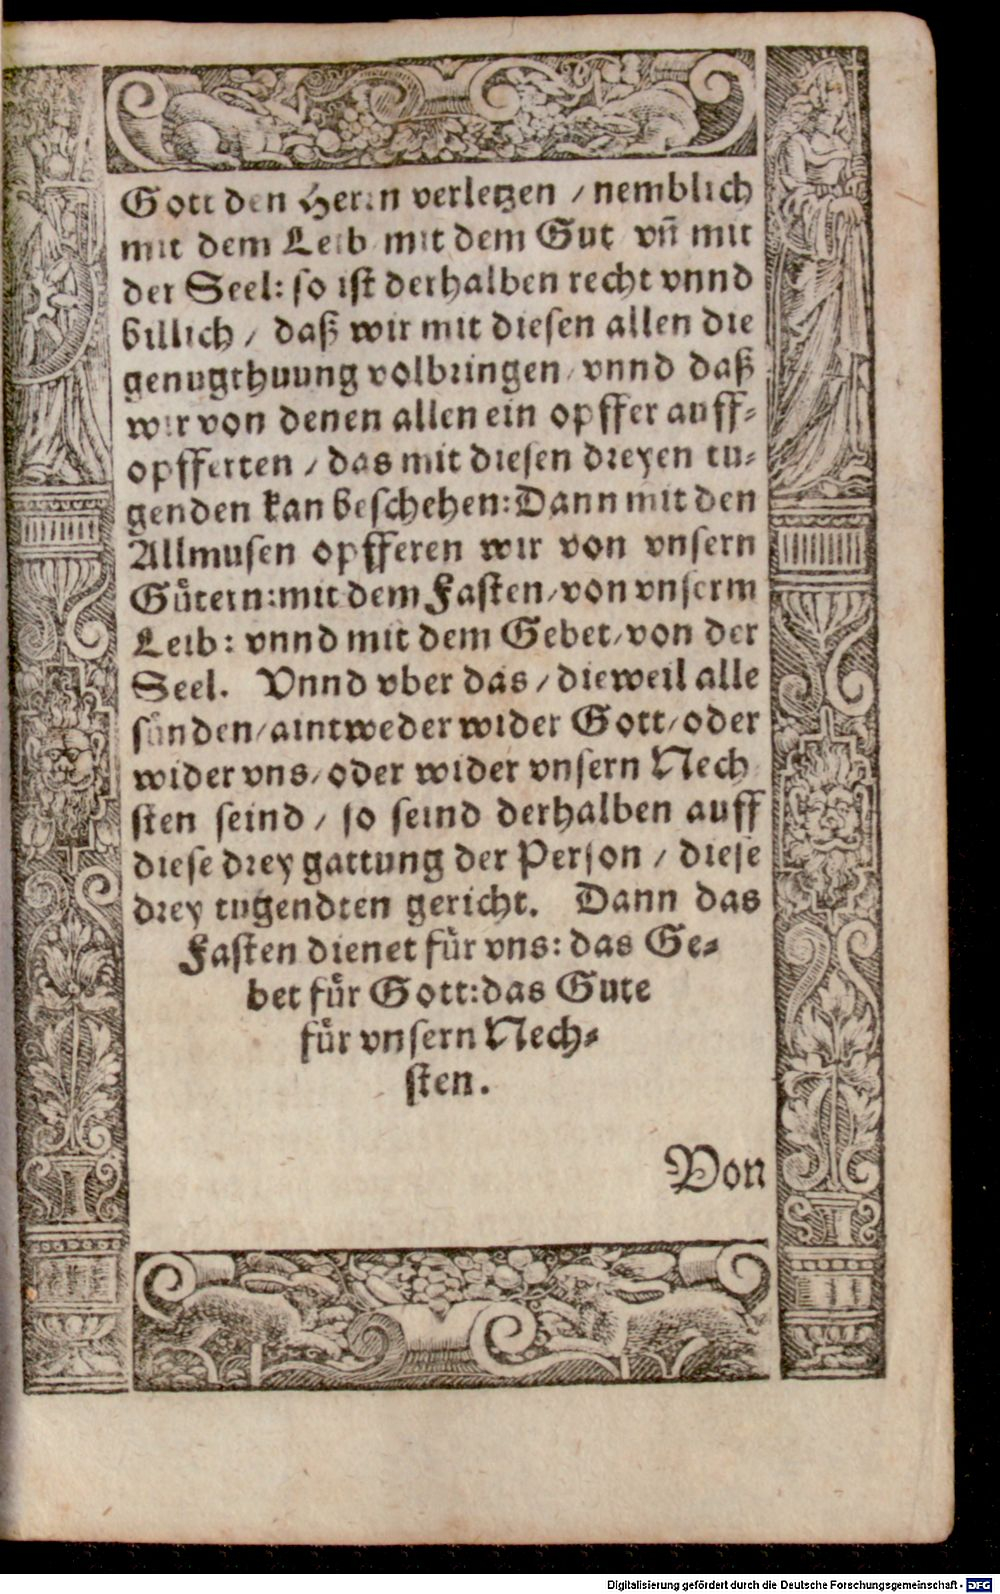 Gott den Herrn verletzen / nemblich
mit dem Leib mit dem Gut vñ mit
der Seel: so ist derhalben recht vnnd
billich / daß wir mit diesen allen die
genugthuung volbringen / vnnd daß
wir von denen allen ein opffer auff-
opfferten / das mit diesen dreyen tu-
genden kan beschehen: Dann mit den
Allmusen opfferen wir von vnsern
Gütern: mit dem Fasten / von vnserm
Leib: vnnd mit dem Gebet / von der
Seel. Vnnd vber das / dieweil alle
sünden / aintweder wider Gott / oder
wider vns / oder wider vnsern Nech
sten seind / so seind derhalben auff
diese drey gattung der Person / diese
drey tugendten gericht. Dann das
Fasten dienet für vns: das Ge-
bet für Gott: das Gute
für vnsern Nech-
sten.
Von
Digitalisierung gefördert durch die Deutsche Forschungsgemeinschaft - DFG